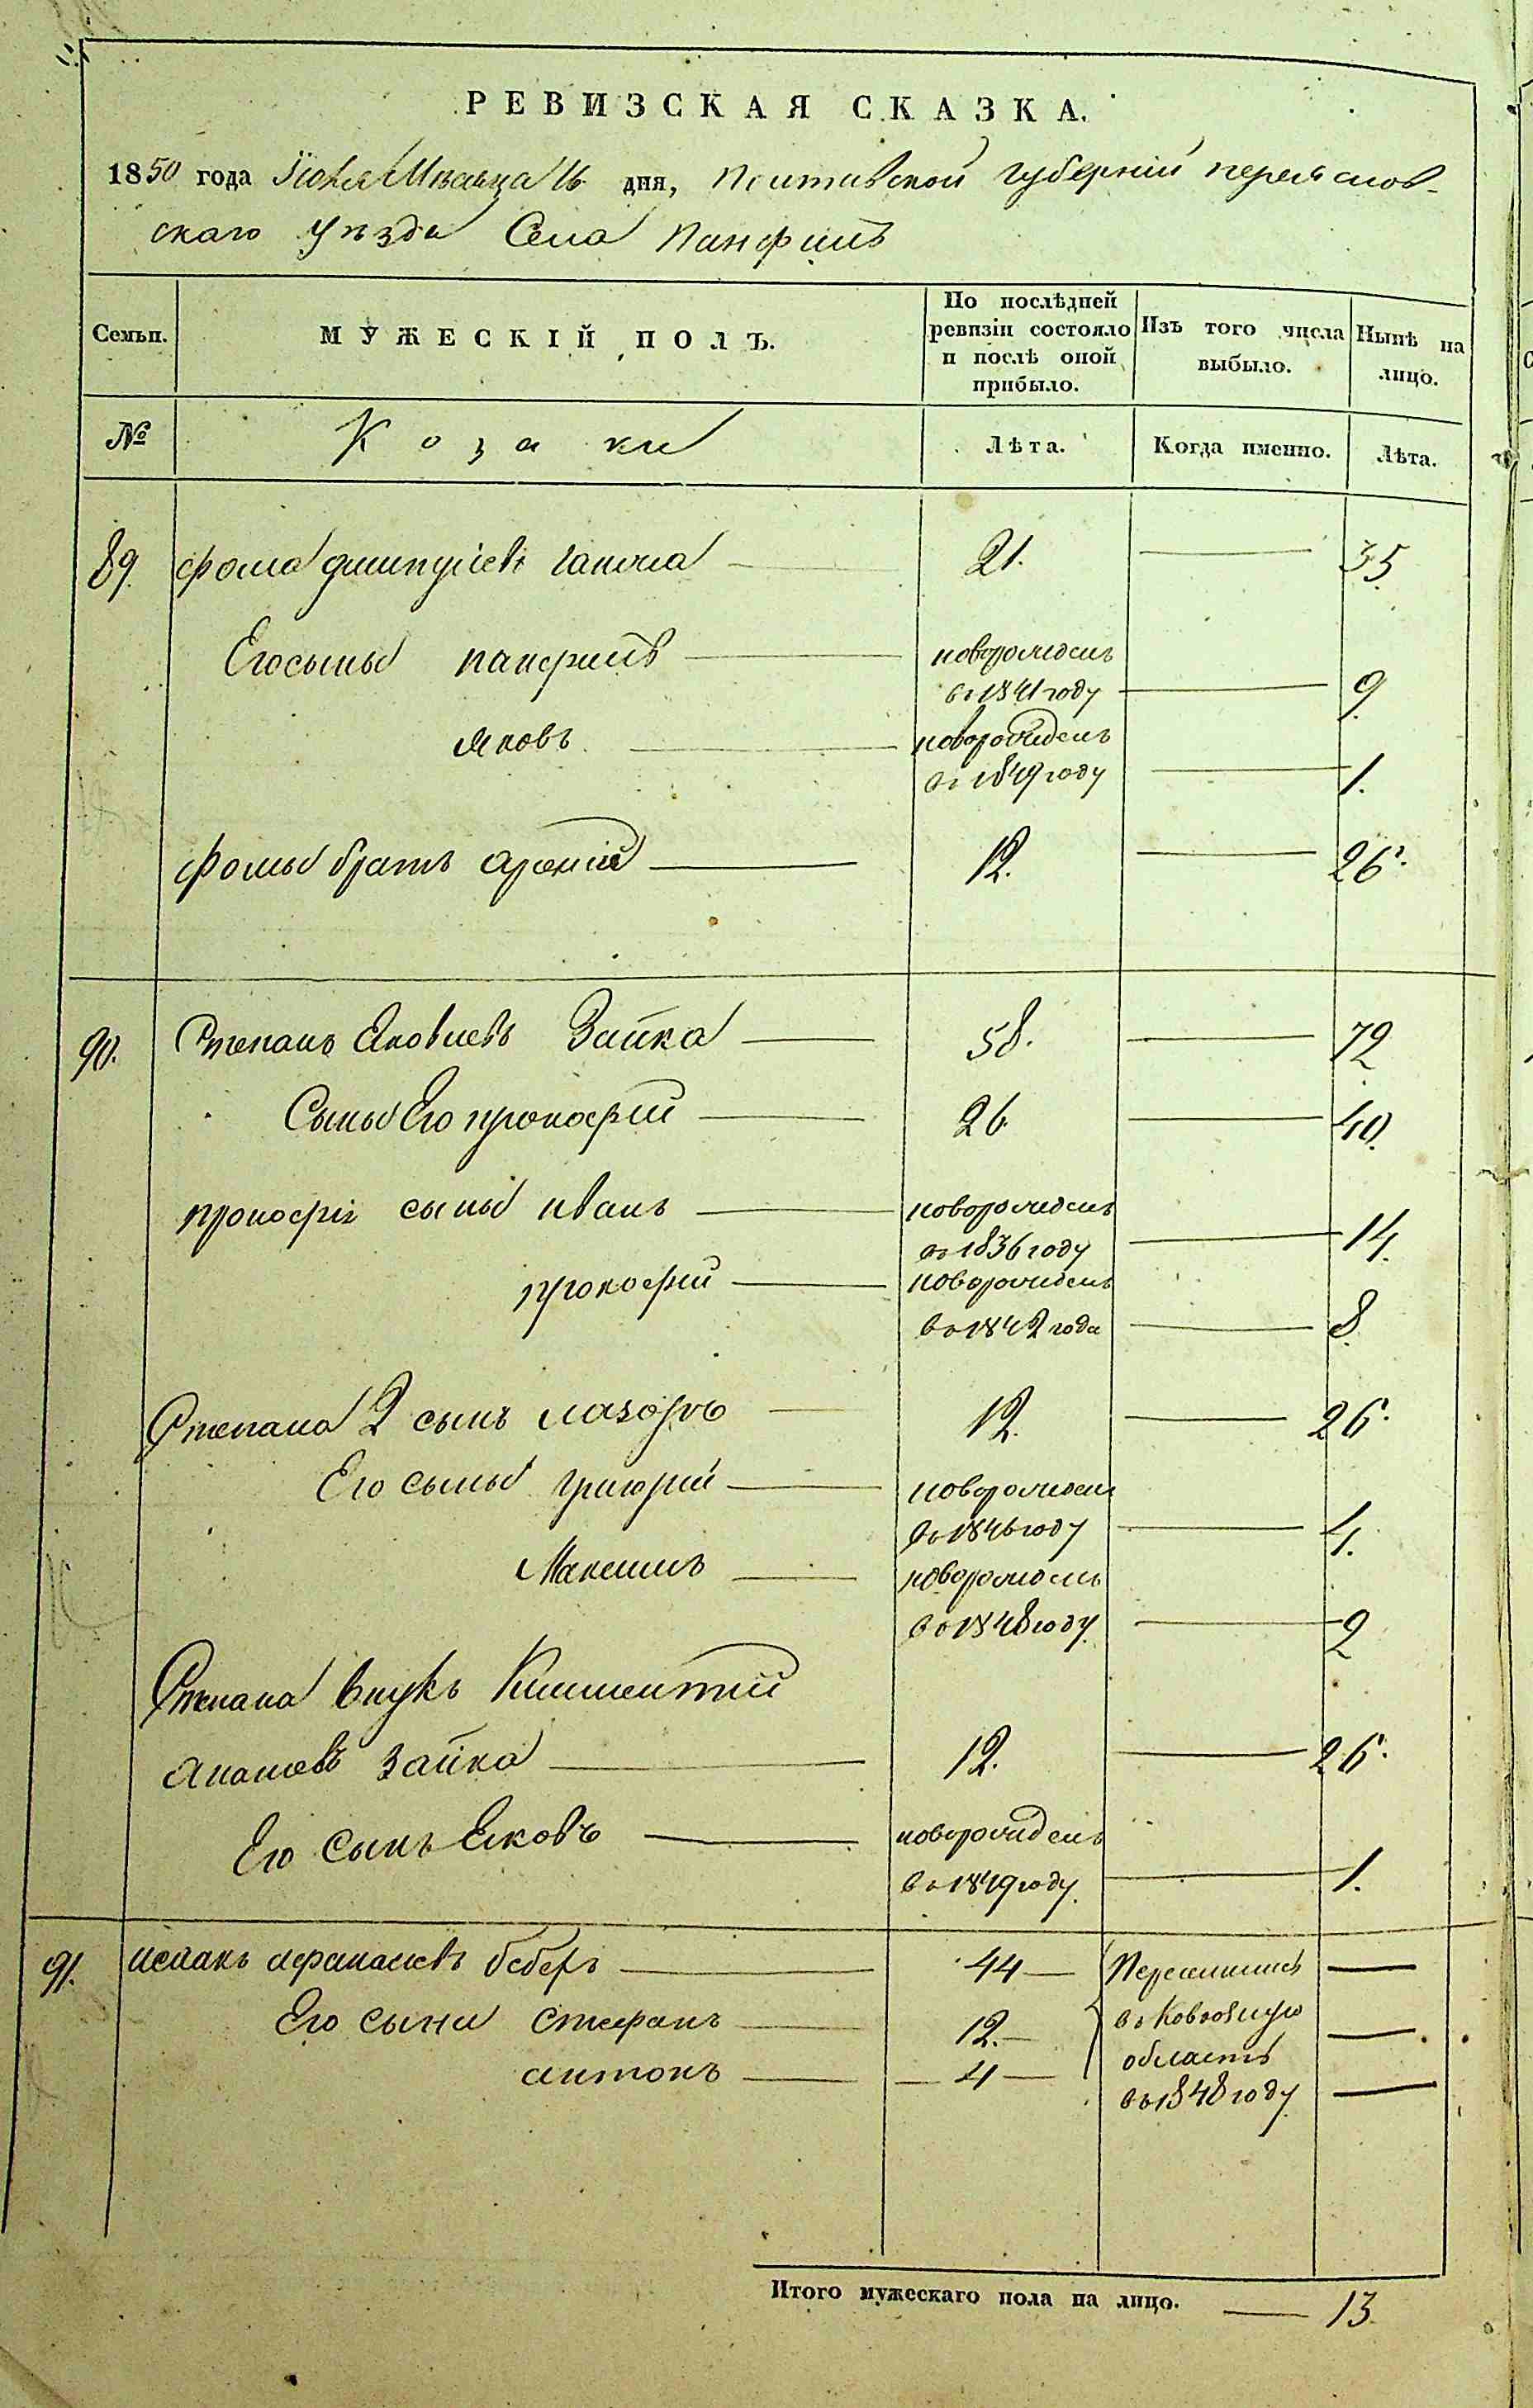 РЕВИЗСКАЯ СКАЗКА.
1850 года Іюля Мѣсяца 16 дня, Полтавской губерніи переяслов-
скаго уѣзда Села Панфилъ
Семьи.
МУЖЕСКІЙ ПОЛЪ.
По послѣдней ревизіи состояло и послѣ оной прибыло.
Изъ того числа выбыло.
Нынѣ на лицо.
№
Козаки
Лѣта.
Когда именно.
Лѣта.
89. Фома 21. 35
Его сыны панфилъ новорожденъ
въ 1841 году 9
Яковъ новорожденъ
въ 1849 году 1.
Фомы братъ 12. 26.
90. Степанъ Яковлевъ Зайка 58. 72
Сыны Его прокофій 26 40
прокофія сыны иванъ новорожденъ
въ 1836 году 14.
прокофій новорожденъ
въ 1842 года 8
Степана 2 сынъ лазорь 12. 26.
Его сыны григорій новорожденъ
въ 1846 году 4.
Максимъ новорожденъ
въ 1848 году 2
Степана внукъ Климентій
Зайка 12. 26.
Его сынъ Яковъ новорожденъ
въ 1849 году. 1.
91. афанасіевъ боберъ 44 Переселились
Его сыни Стефанъ 12. въ
антонъ 4 область
въ 1848 году
Итого мужескаго пола на лицо. 13